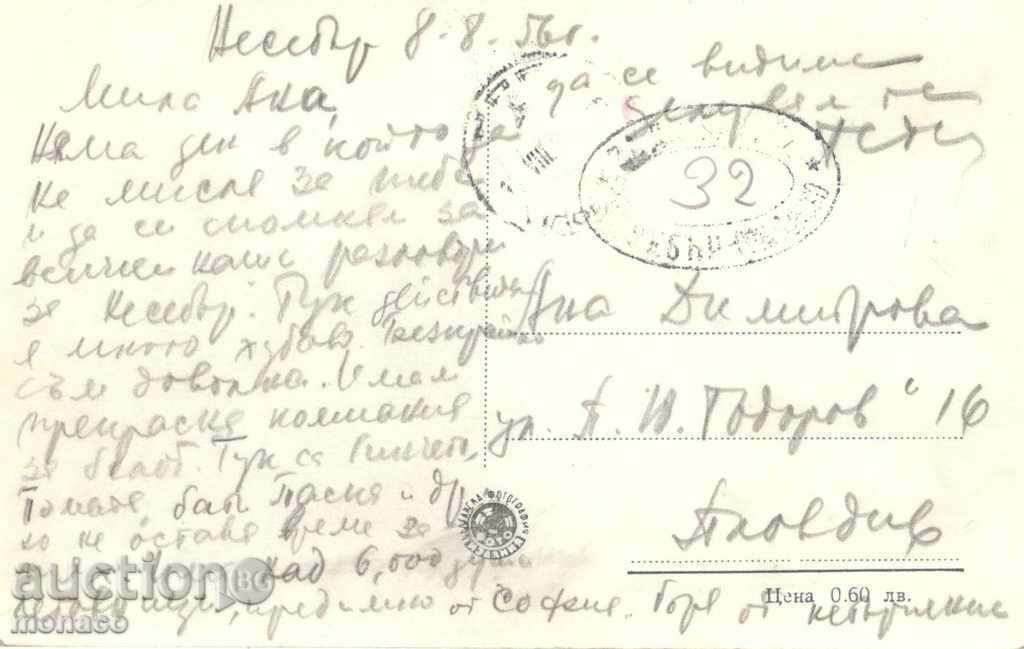 Несебър 8.8.56г.
Мила Ана,
Няма ден в който да
не мисля за тебе
и да си спомням за
всички наши разговори
за Несебър. Тук действително
е много хубаво. Безкрайно
съм доволна. Имам
прекрасна компания
за белот. Тук са Винчето,
Томата, бай Паско и др.
но не остава време за
над 6,000 души
предимно от София. Горя от нетърпение
да се видим
32
Ана Димитрова
ул. "П. Ю. Тодоров" 16
Пловдив
Цена 0.60 лв.
auction BG
monaco